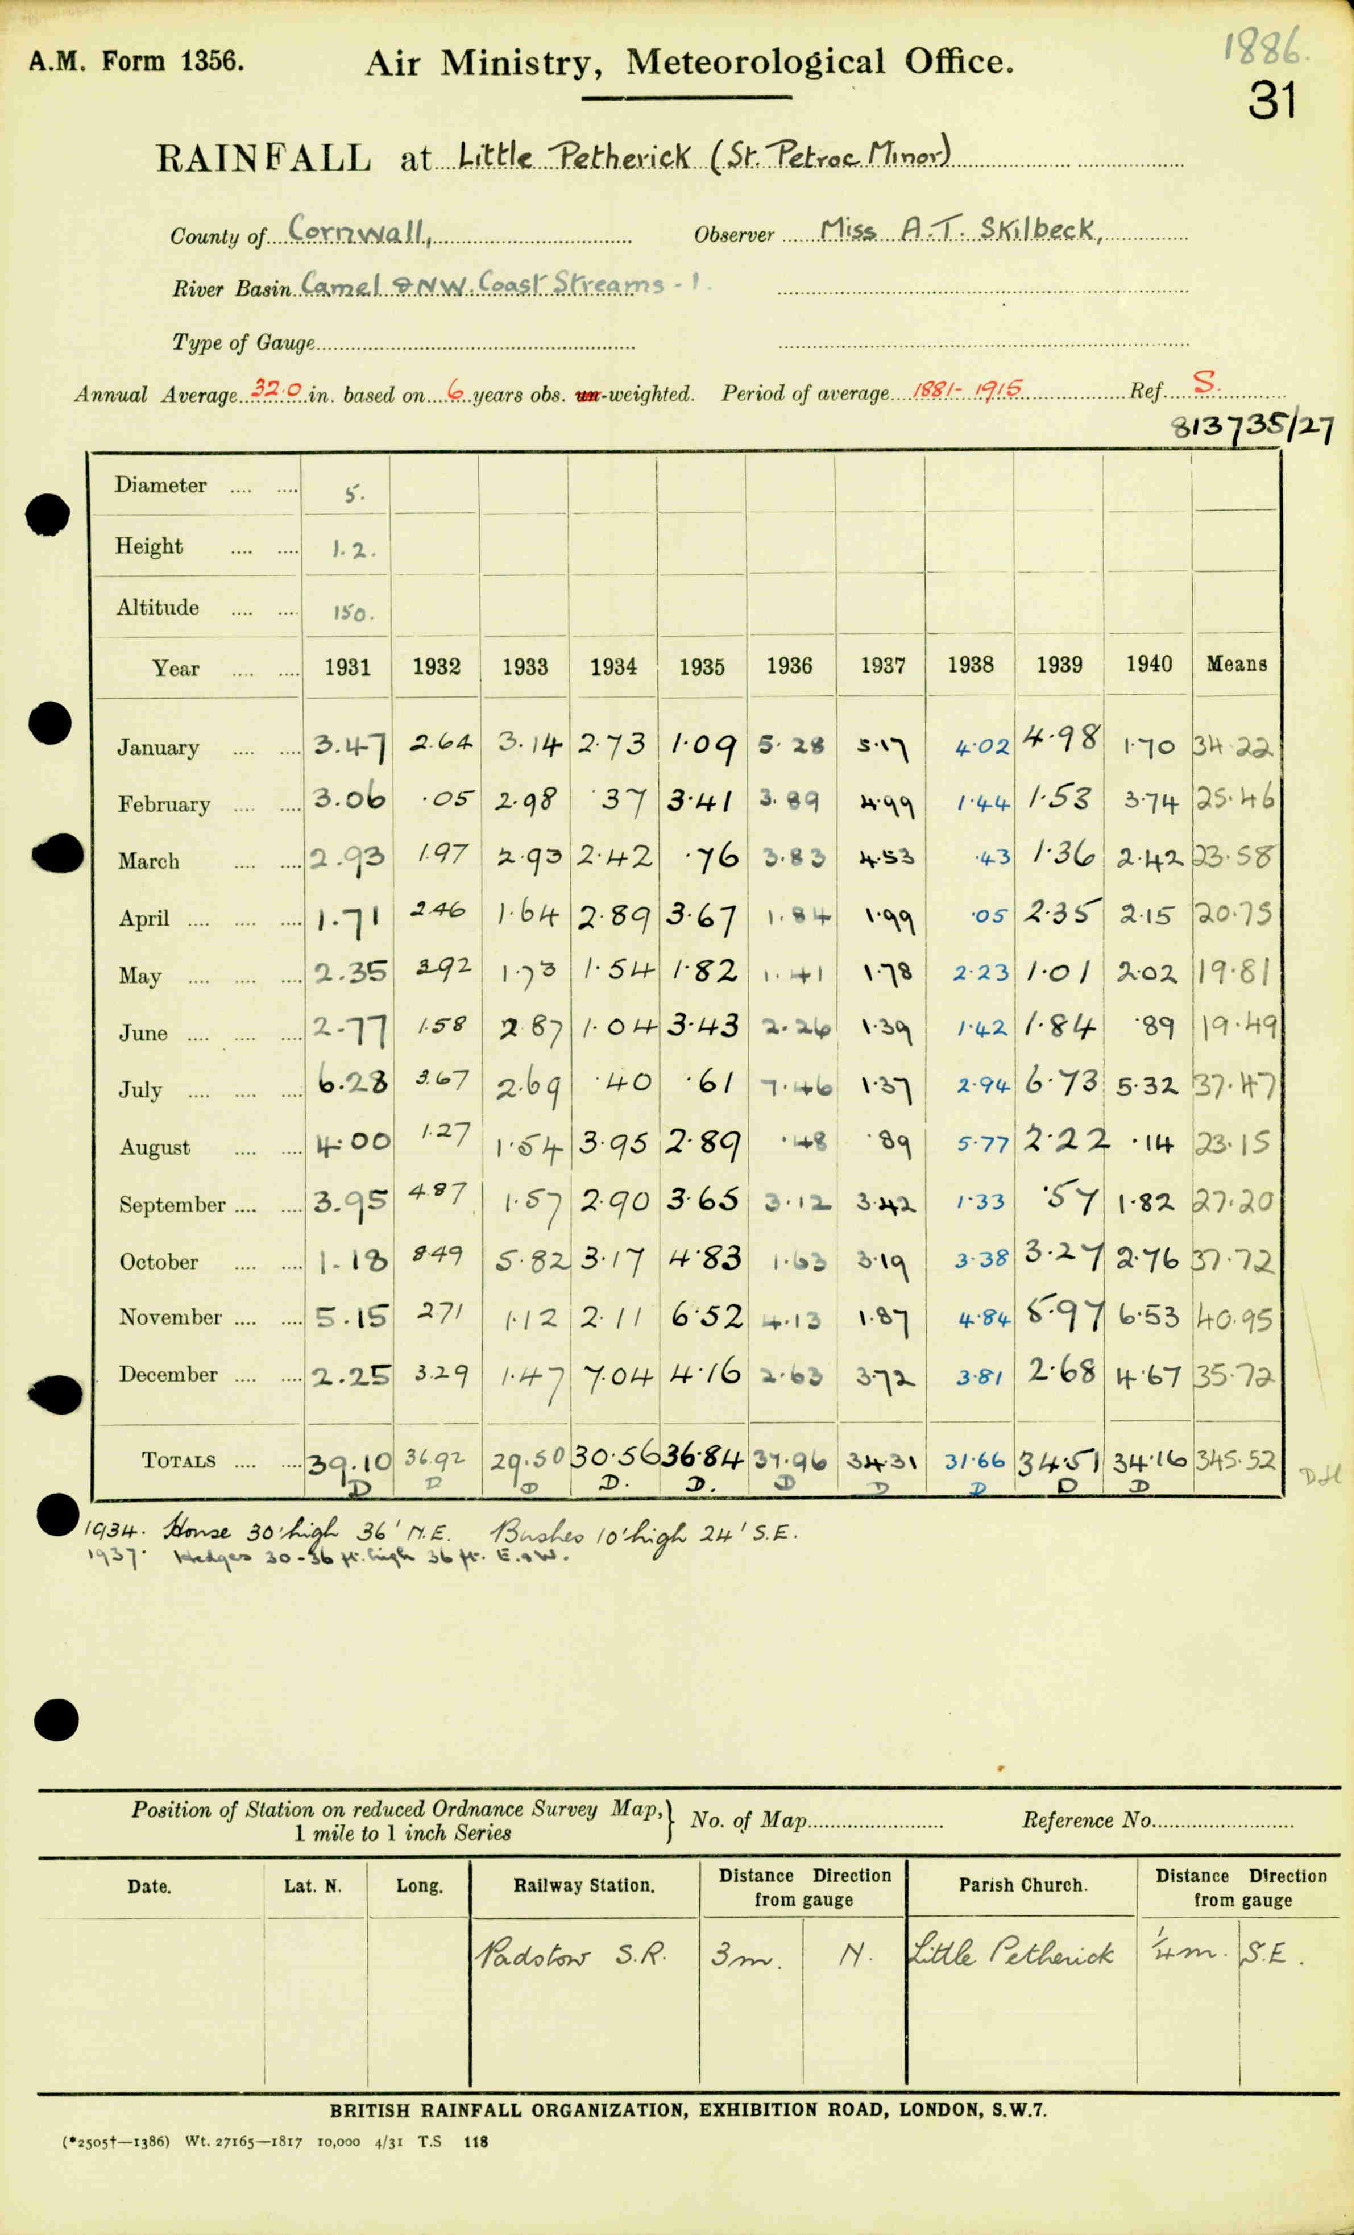 1886.
A.M. Form 1356. Air Ministry, Meteorological Office.
31
RAINFALL at Little Petherick (St. Petroc Minor)
County of Cornwall, Observer Miss A.T. Skilbeck,
River Basin Camel & NW. Coast Streams - 1.
Type of Gauge
Annual Average 32.0 in. based on 6 years obs. un-weighted. Period of average 1881-1915 Ref. S.
813735/27
Diameter 5.
Height 1.2.
Altitude 150.
Year 1931 1932 1933 1934 1935 1936 1937 1938 1939 1940 Means
January 3.47 2.64 3.14 2.73 1.09 5.28 5.17 4.02 4.98 1.70 34.22
February 3.06 .05 2.98 .37 3.41 3.89 4.99 1.44 1.53 3.74 25.46
March 2.93 1.97 2.93 2.42 .76 3.83 4.53 .43 1.36 2.42 23.58
April 1.71 2.46 1.64 2.89 3.67 1.84 1.99 .05 2.35 2.15 20.75
May 2.35 3.92 1.73 1.54 1.82 1.41 1.78 2.23 1.01 2.02 19.81
June 2.77 1.58 2.87 1.04 3.43 2.26 1.39 1.42 1.84 .89 19.49
July 6.28 3.67 2.69 .40 .61 7.46 1.37 2.94 6.73 5.32 37.47
August 4.00 1.27 1.54 3.95 2.89 .48 .89 5.77 2.22 .14 23.15
September 3.95 4.87 1.57 2.90 3.65 3.12 3.42 1.33 .57 1.82 27.20
October 1.18 8.49 5.82 3.17 4.83 1.63 3.19 3.38 3.27 2.76 37.72
November 5.15 2.71 1.12 2.11 6.52 4.13 1.87 4.84 5.97 6.53 40.95
December 2.25 3.29 1.47 7.04 4.16 2.63 3.72 3.81 2.68 4.67 35.72
TOTALS 39.10 36.92 29.50 30.56 36.84 37.96 34.31 31.66 34.51 34.16 345.52
D D D D. D. D D D D D
1934. House 30' high 36' N.E. Bushes 10' high 24' S.E.
1937. Hedges 30-36 ft. high 36 ft. E. & W.
Position of Station on reduced Ordnance Survey Map, 1 mile to 1 inch Series } No. of Map Reference No.
Date. Lat. N. Long. Railway Station. Distance Direction from gauge Parish Church. Distance Direction from gauge
Padstow S.R. 3m. N. Little Petherick ¼m. S.E.
BRITISH RAINFALL ORGANIZATION, EXHIBITION ROAD, LONDON, S.W.7.
(*2505†—1386) Wt. 27165—1817 10,000 4/31 T.S 118